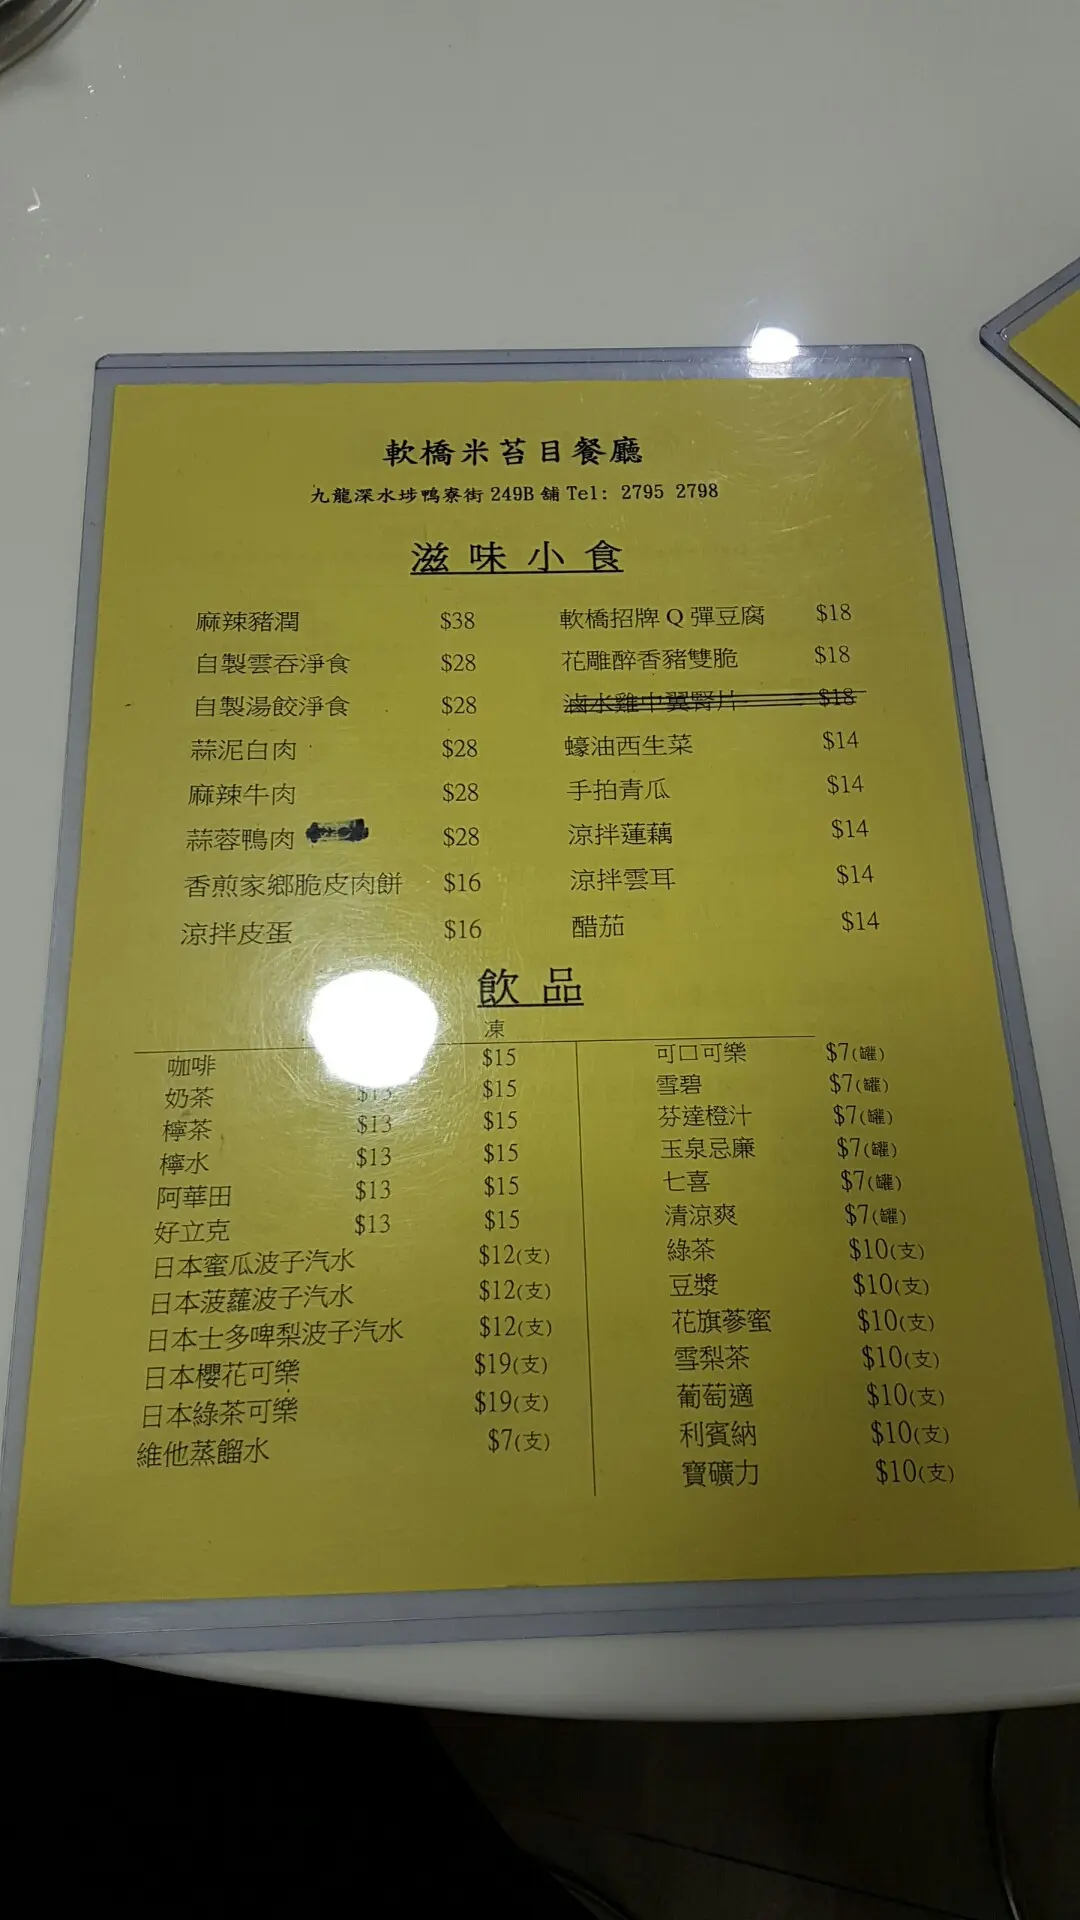 軟橋米苔目餐廳
九龍深水埗鴨寮街 249B 舖 Tel: 2795 2798
滋味小食
麻辣豬潤 $38 軟橋招牌 Q 彈豆腐 $18
自製雲吞淨食 $28 花雕醉香豬雙脆 $18
自製湯餃淨食 $28 滷水雞中翼腎片 $18
蒜泥白肉 $28 蠔油西生菜 $14
麻辣牛肉 $28 手拍青瓜 $14
蒜蓉鴨肉 $28 涼拌蓮藕 $14
香煎家鄉脆皮肉餅 $16 涼拌雲耳 $14
涼拌皮蛋 $16 醋茄 $14
飲品
凍
咖啡 $15 可口可樂 $7(罐)
奶茶 $13 $15 雪碧 $7(罐)
檸茶 $13 $15 芬達橙汁 $7(罐)
檸水 $13 $15 玉泉忌廉 $7(罐)
阿華田 $13 $15 七喜 $7(罐)
好立克 $13 $15 清涼爽 $7(罐)
日本蜜瓜波子汽水 $12(支) 綠茶 $10(支)
日本菠蘿波子汽水 $12(支) 豆漿 $10(支)
日本士多啤梨波子汽水 $12(支) 花旗蔘蜜 $10(支)
日本櫻花可樂 $19(支) 雪梨茶 $10(支)
日本綠茶可樂 $19(支) 葡萄適 $10(支)
維他蒸餾水 $7(支) 利賓納 $10(支)
寶礦力 $10(支)